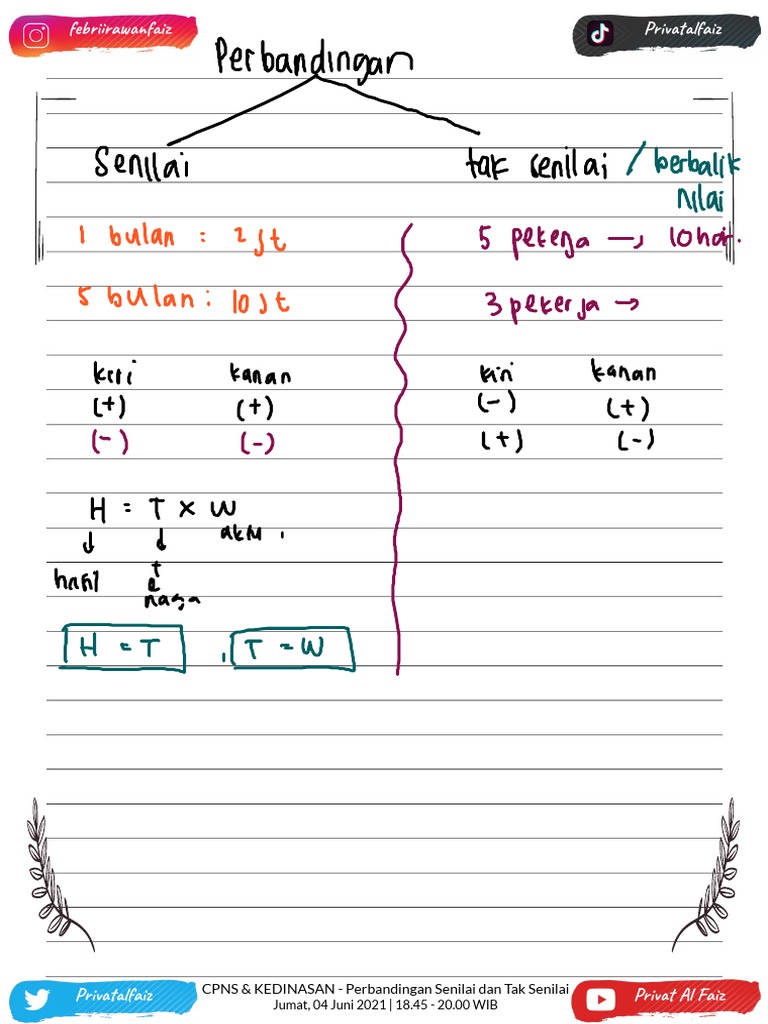 febriirawanfaiz
Privatalfaiz
Perbandingan
Senilai
tak senilai / berbalik
nilai
1 bulan : 2 jt
5 pekerja → 10 hari.
5 bulan : 10 jt
3 pekerja →
kiri kanan
kiri kanan
(+) (+)
(-) (+)
(-) (-)
(+) (-)
H = T x W
aktu
hasil
e
naga
H = T , T = W
CPNS & KEDINASAN - Perbandingan Senilai dan Tak Senilai
Jumat, 04 Juni 2021 | 18.45 - 20.00 WIB
Privatalfaiz
Privat Al Faiz